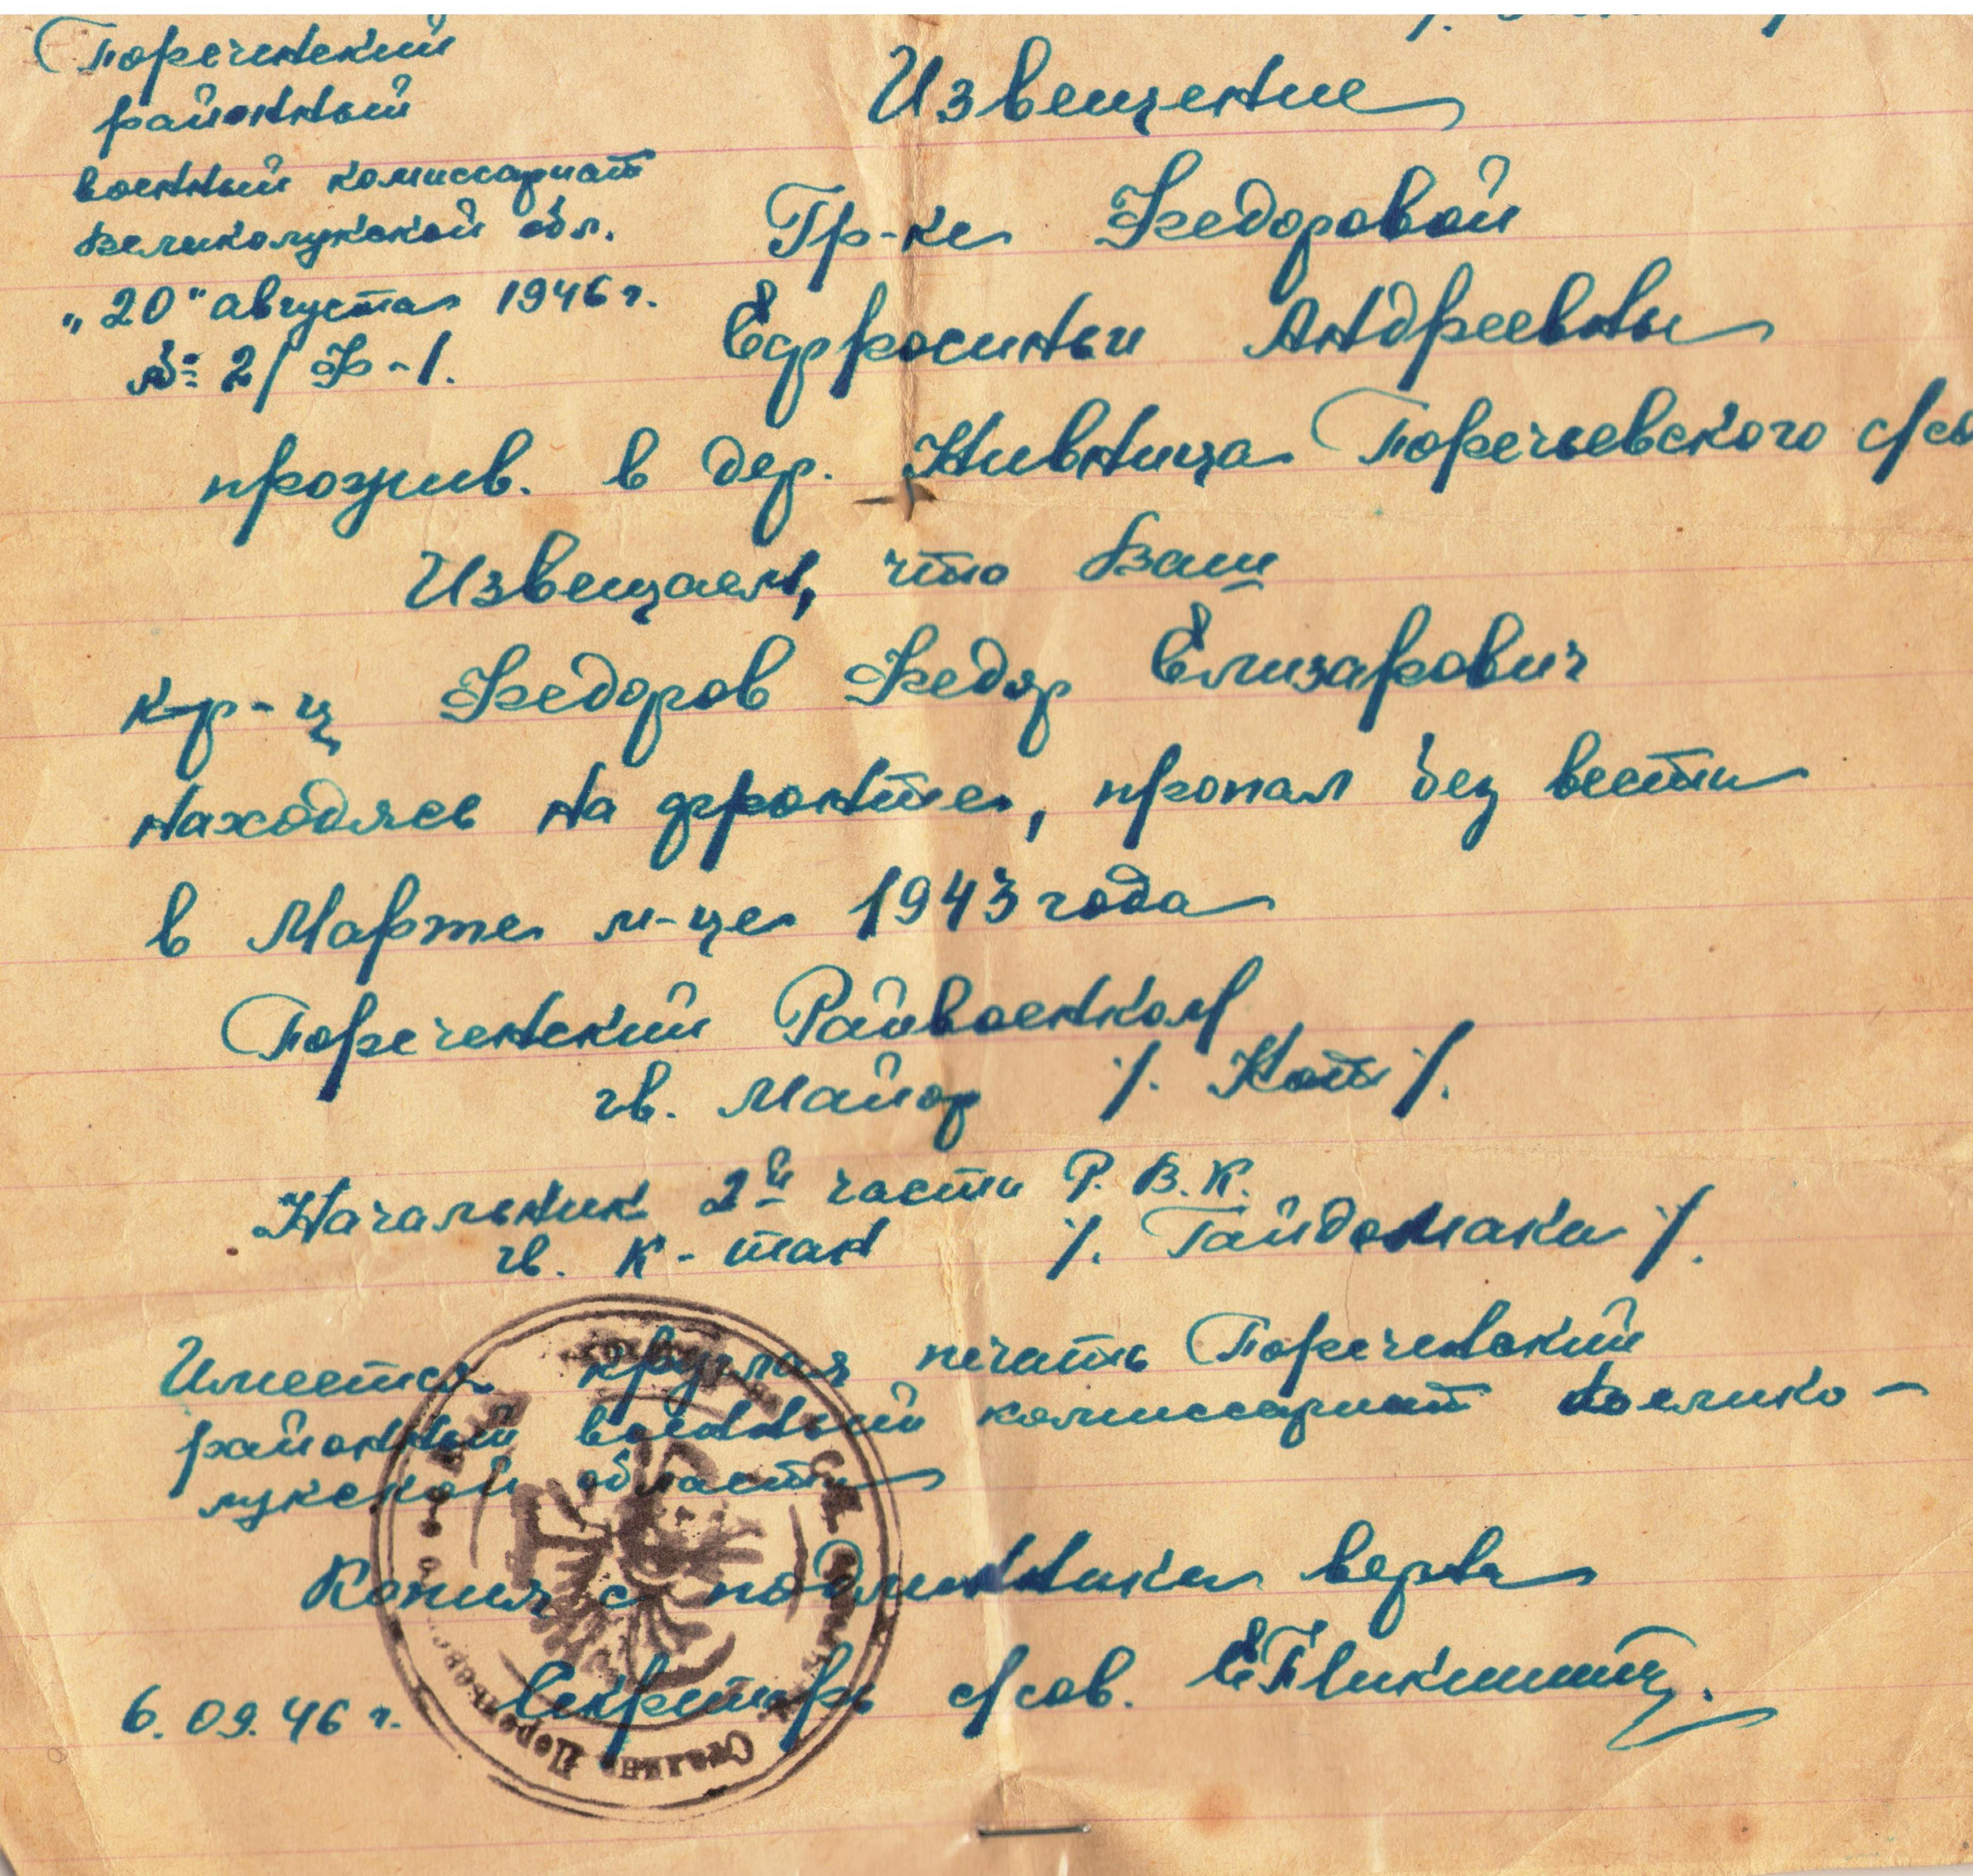 Пореченский
районный
военный комиссариат
Великолукской обл.
"20" августа 1946 г.
№ 2/Ф-1.
Извещение
Гр-ке Федоровой
Ефросиньи Андреевны
прожив. в дер. Нивница Поречьевского с/со
Извещаем, что Ваш
кр-ц Федоров Федор Елизарович
находясь на фронте, пропал без вести
в Марте м-це 1943 года
Пореченский Райвоенком
гв. Майор /. Кот /.
Начальник 2й части Р.В.К.
гв. К-тан /. Гайдомака /.
Имеется круглая печать Пореченский
районный военный комиссариат Велико-
лукской области
Копия с подлинника верна
6.09.46 г. Секретарь с/сов.